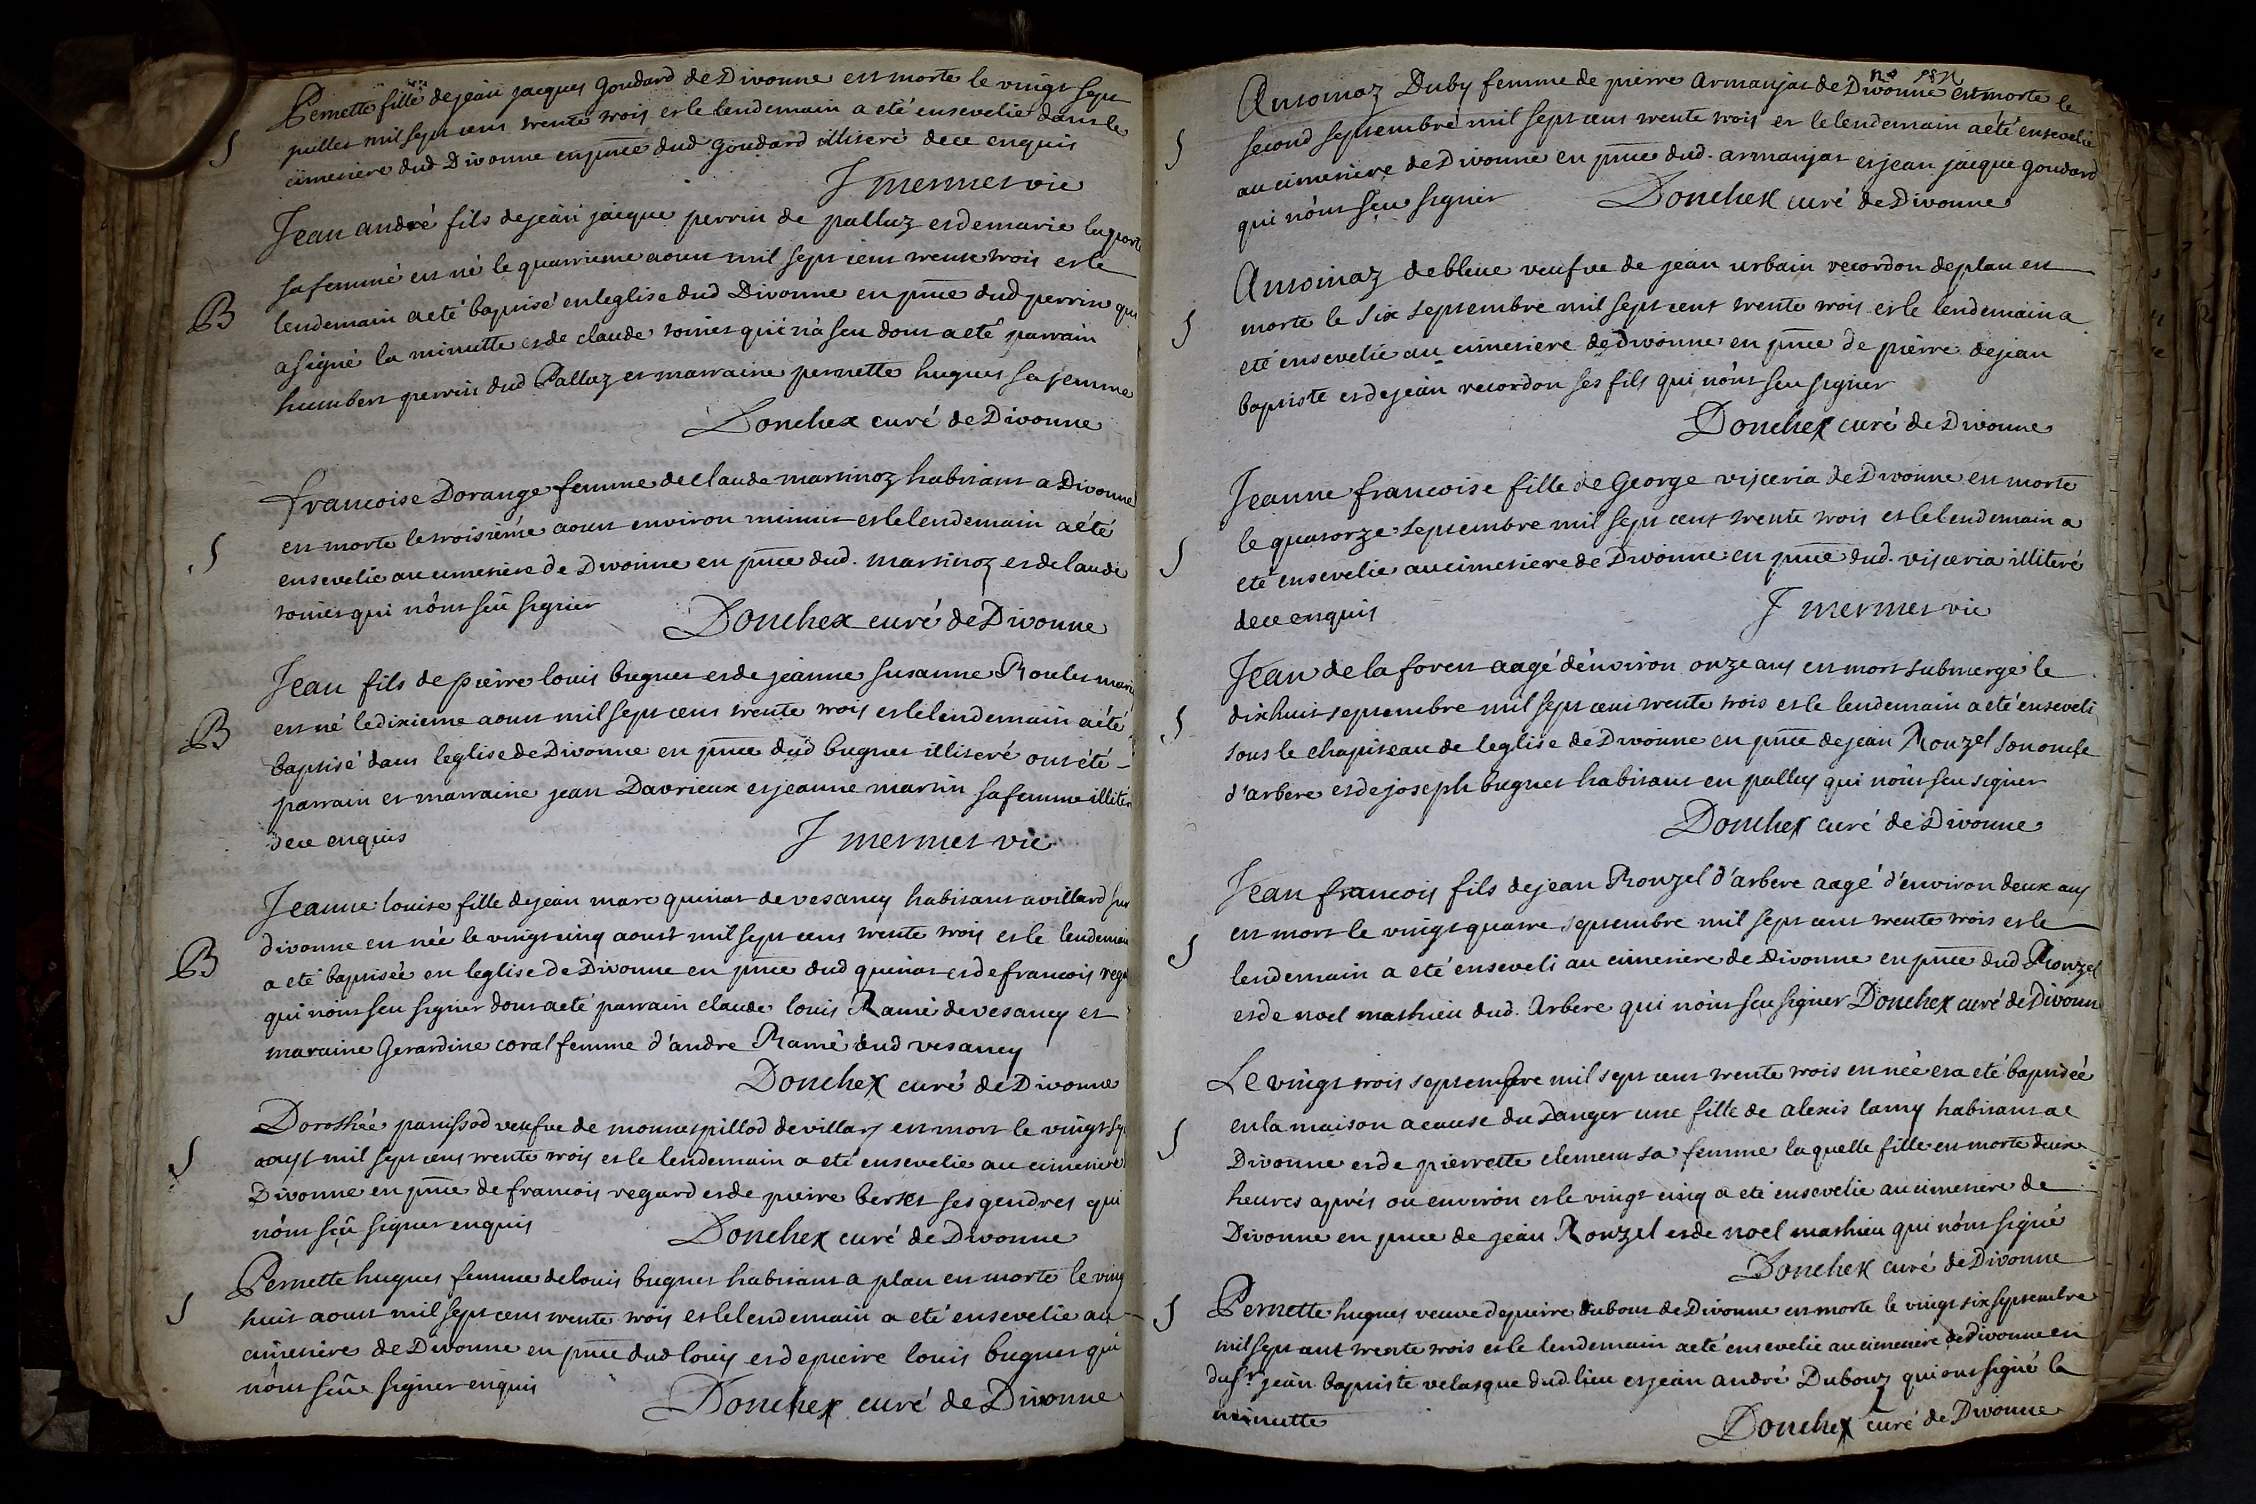 Pernette fille de jean jacques goudard de Divonne est morte le vingt sept
juillet mil sept cens trente trois et le lendemain a eté ensevelie dans le
cimetiere dud Divonne en pnce dud goudard illiteré de ce enquis
J mermet vic
Jean andré fils de jean jacque perrin de palluz et de marie laporte
sa femme est né le quatrieme aoust mil sept cens trente trois et le
B lendemain a eté baptisé en leglise dud Divonne en pnce dud perrin qui
a signé la minutte et de claude tomiet qui n'a seu dont a eté parrain
humbert perrin dud Palluz et marraine pernette hugues sa femme
Donchex curé de Divonne
francoise Dorange femme de claude martinoz habitant a Divonne
est morte le troisiéme aoust environ minuit et le lendemain a été
S ensevelie au cimetiere de Divonne en pnce dud. martinoz et de claude
tomiet qui n'ont seu signer Donchex curé de Divonne
Jean fils de pierre louis bugnet et de jeanne susanne Roulet mariés
est né le dixieme aoust mil sept cens trente trois et le lendemain a été
B baptisé dans leglise de Divonne en pnce dud bugnet illiteré ont été
parrain et marraine jean Davrieux et jeanne martin sa femme illiter
de ce enquis J mermet vic
Jeanne louise fille de jean marc quinat de vesancy habitant a villard sur
divonne est née le vingt cinq aoust mil sept cens trente trois et le lendemain
B a eté baptisée en leglise de Divonne en pnce dud quinat et de francois rega
qui n'ont seu signer dont a eté parrain claude louis Ramé de vesancy et
maraine Gerardine coral femme d'andre Ramé dud vesancy
Donchex curé de Divonne
Dorothée panissod veufve de monnet pillod de villars est mort le vingt sep
S aoust mil sept cens trente trois et le lendemain a eté ensevelie au cimetiere
Divonne en pnce de francois regard et de pierre bertet ses gendres qui
n'ont seû signer enquis Donchex curé de Divonne
Pernette hugues femme de louis bugnet habitant a plan est morte le ving
S huit aoust mil sept cens trente trois et le lendemain a eté ensevelie au
cimetiere de Divonne en pnce dud louis et de pierre louis bugnet qui
n'ont seû signer enquis Donchex curé de Divonne
Antoinaz Duby femme de pierre armanjat de Divonne est morte le
S second septembre mil sept cens trente trois et le lendemain a été ensevelie
au cimetiere de Divonne en pnce dud. armanjat et jean jacque goudard
qui n'ont sçu signer Donchex curé de Divonne
Antoinaz deblüe veufve de jean urbain recordon de plan est
S morte le six septembre mil sept cent trente trois et le lendemain a
eté ensevelie au cimetiere de Divonne en pnce de pierre de jean
baptiste et de jean recordon ses fils qui n'ont seu signer
Donchex curé de Divonne
Jeanne francoise fille de George visceria de Divonne est morte
le quatorze septembre mil sept cent trente trois et le lendemain a
S eté ensevelie au cimetiere de Divonne en pnce dud. visceria illiteré
de ce enquis J mermet vic
Jean de la forest aagé d'environ onze ans est mort submergé le
S dixhuit septembre mil sept cens trente trois et le lendemain a eté enseveli
sous le chapiteau de leglise de Divonne en pnce de jean Rouzel son oncle
d'arbere et de joseph bugnet habitant en palley qui n'ont seu signer
Donchex curé de Divonne
Jean francois fils de jean Rouzel d'arbere aagé d'environ deux ans
est mort le vingt quatre septembre mil sept cens trente trois et le
S lendemain a eté enseveli au cimetiere de Divonne en pnce dud Rouzel
et de noel mathieu dud. Arbere qui n'ont seu signer Donchex curé de Divonne
Le vingt trois septembre mil sept cens trente trois est née et a eté baptisée
S en la maison a cause du danger une fille de alexis lamy habitant a
Divonne et de pierrette clement sa femme laquelle fille est morte deux
heures aprés ou environ et le vingt cinq a eté ensevelie au cimetiere de
Divonne en pnce de jean Rouzel et de noel mathieu qui n'ont signé
Donchex curé de Divonne
S Pernette hugues veuve de pierre dubout de Divonne est morte le vingt six septembre
mil sept cent trente trois et le lendemain a eté ensevelie au cimetiere de Divonne en
du sr. jean baptiste velasque dud. lieu et jean andré Dubouz qui ont signé la
minutte Donchex curé de Divonne